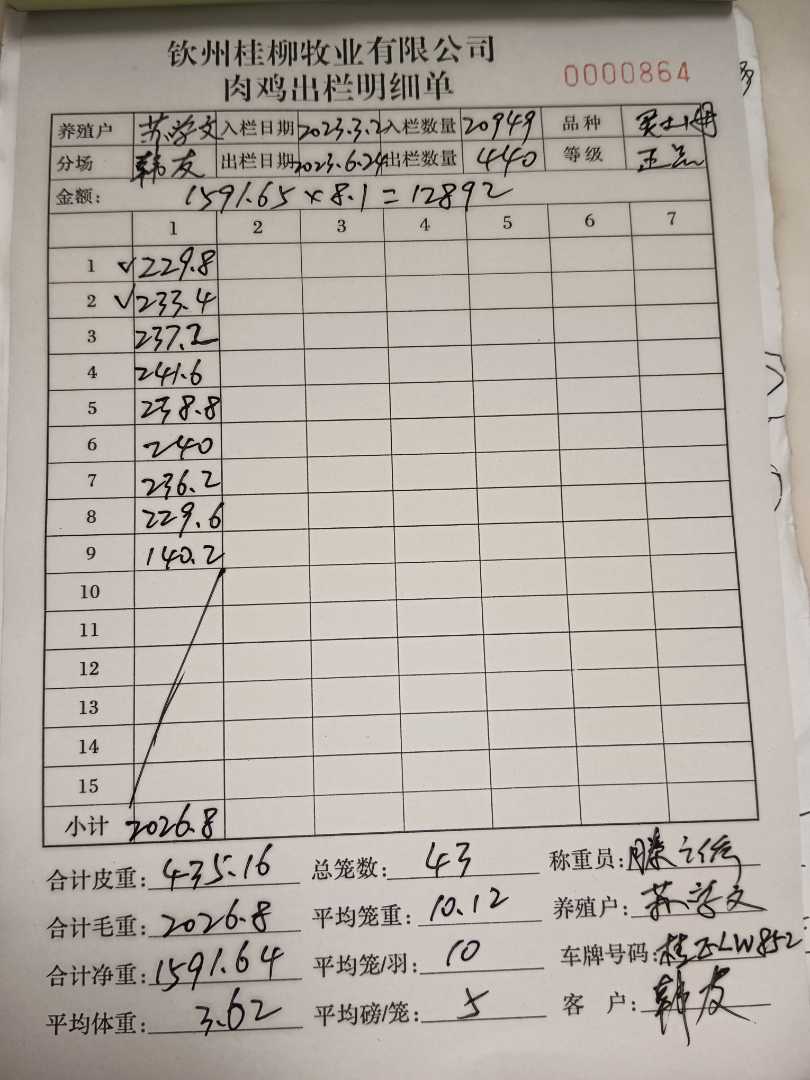 钦州桂柳牧业有限公司
肉鸡出栏明细单 0000864
养殖户 苏学文 入栏日期 2023.3.2 入栏数量 20949 品种
分场 韩友 出栏日期 2023.6.24 出栏数量 440 等级 正品
金额: 1591.65 x 8.1 = 12892
1 2 3 4 5 6 7
1 ✓229.8
2 ✓233.4
3 237.2
4 241.6
5 238.8
6 240
7 236.2
8 229.6
9 140.2
10
11
12
13
14
15
小计 2026.8
合计皮重: 435.16 总笼数: 43 称重员:
合计毛重: 2026.8 平均笼重: 10.12 养殖户: 苏学文
合计净重: 1591.64 平均笼/羽: 10 车牌号码: 桂 LW852
平均体重: 3.62 平均磅/笼: 5 客 户: 韩友